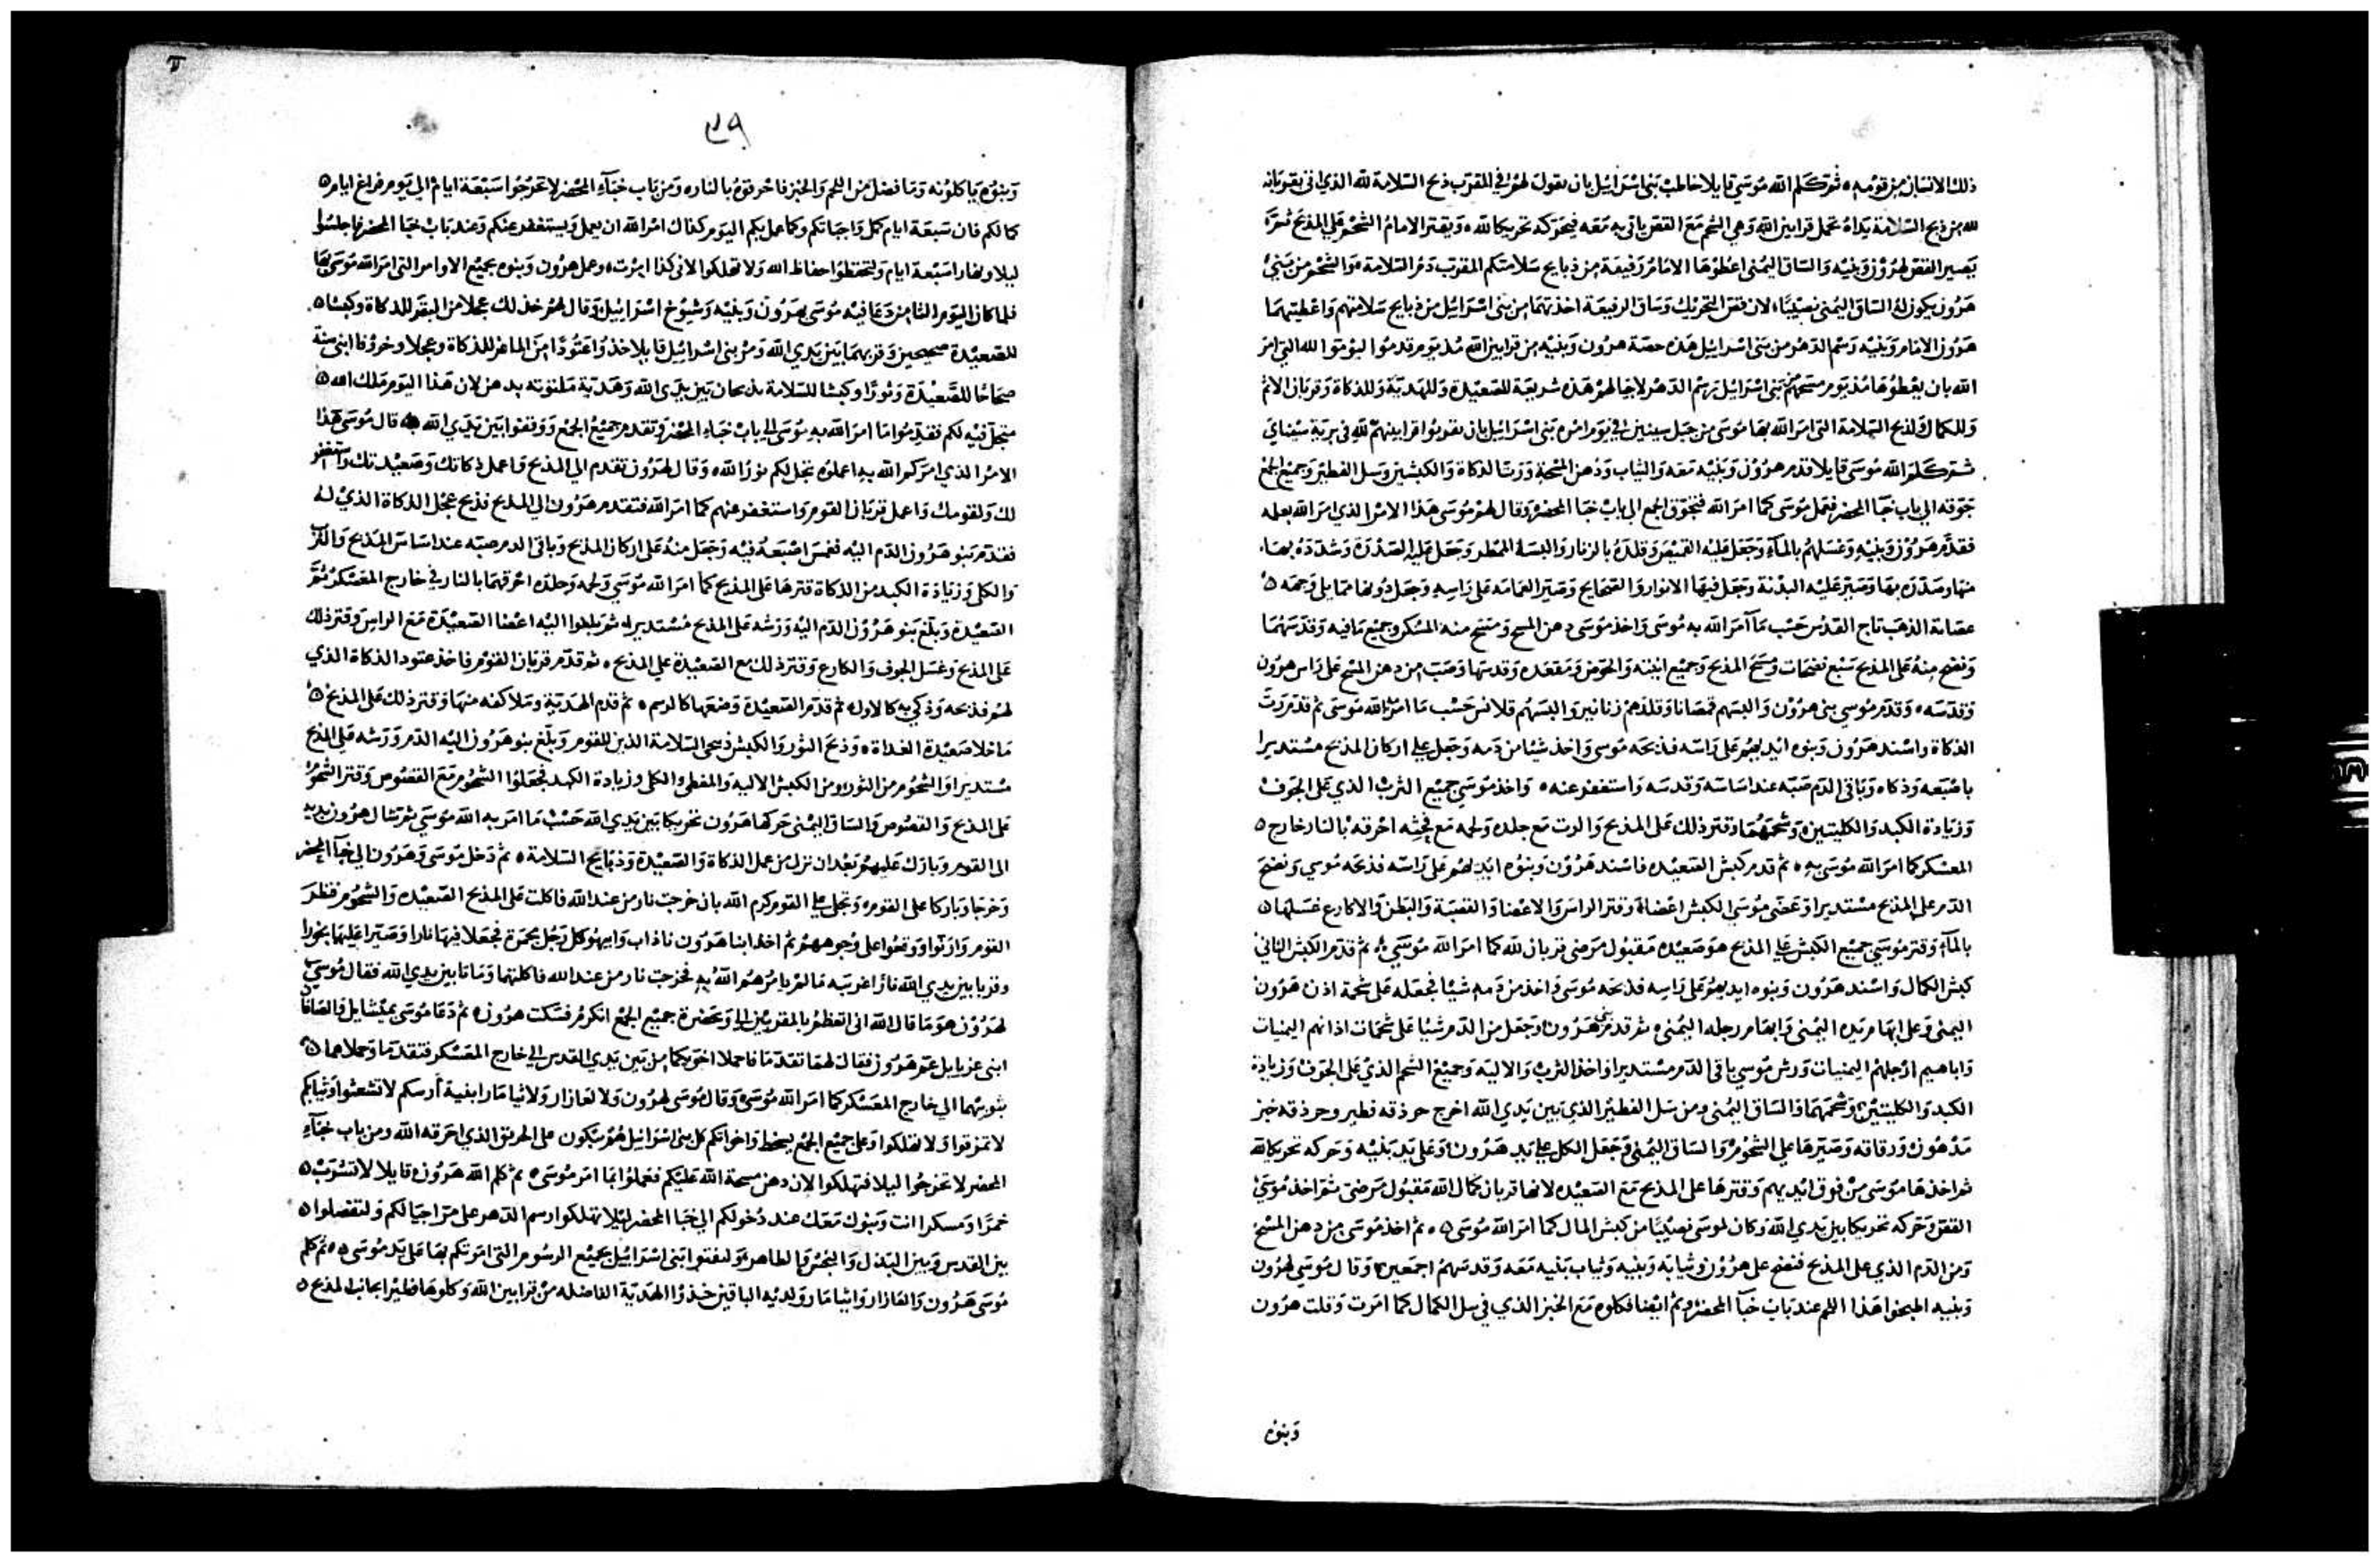 ذلك الانسان من قومه ٥ ثم كلم الله موسى قايلا خاطب بني اسرائيل بان يقول لهم في المقرب ذبح السلامة لله الذي اتى بقربانه
لله من ذبح السلامة يداه تحمل قرابين الله وهي الشحم مع القص ياتي به معه فيحركه تحريكا لله ٥ ويقتر الامام الشحم على المذبح ثم
يصير القص لهرون وبنيه والساق اليمنى اعطوها الامام رفيعة من ذبايح سلامتكم المقرب دم السلامة والشحم من بني
هرون يكون له الساق اليمنى نصيبا، لان قص التحريك وساق الرفيعة اخذتهما من بني اسرائيل من ذبايح سلامتهم واعطيتهما
هرون الامام وبنيه رسم الدهر من بني اسرائيل هذه حصة هرون وبنيه من قرابين الله مذ يوم قدموا ليؤموا لله التي امر
الله بان يعطوها مذ يوم مسحهم من بني اسرائيل رسم الدهر لاجيالهم هذه شريعة للصعيدة وللهدية وللذكاة وقربان الاثم
وللكمال ولذبح السلامة التي امر الله بها موسى من جبل سينين في يوم امره بني اسرائيل بان يقربوا قرابينهم لله في برية سيناي
ثم كلم الله موسى قايلا قدم هرون وبنيه معه والثياب ودهن المسحة ورت الذكاة والكبشين وسل الفطير وجميع الجمع
جوقه الى باب خبآ المحضر فعمل موسى كما امر الله فتجوق الجمع الى باب خبا المحضر وقال لهم موسى هذا الامر الذي امر الله بعمله
فقدم هرون وبنيه وغسلهم بالمآء وجعل عليه القميص وقلده بالزنار والبسه الممطر وجعل عليه الصدرة وشدده بها،
منها وصدره بها وصير عليه البدنة وجعل فيها الانوار والصحايح وصير العمامه على راسه وجعل دونها مما يلي وجهه ٥
عصابة الذهب تاج القدس حسب مآ امر الله به موسى واخذ موسى دهن المسح ومسح منه المسكن وجميع مافيه وقدسهما
ونضح منه على المذبح سبع نضحات ومسح المذبح وجميع انيته والحوض ومقعده وقدسها وصب من دهن المسح على راس هرون
وقدسه ٥ وقدم موسى بني هرون والبسهم قمصانا وقلدهم زنانير والبسهم قلانس حسب ما امر الله موسى ثم قدم رت
الذكاة واسند هرون وبنوه ايديهم على راسه فذبحه موسى واخذ شيا من دمه وجعل على اركان المذبح مستديرا
باصبعه وذكاه وباقي الدم صبه عند اساسه وقدسه واستغفر عنه ٥ واخذ موسى جميع الثرب الذي على الجوف
وزيادة الكبد والكليتين وشحمهما وقتر ذلك على المذبح والرت مع جلده ولحمه مع فرثه احرقه بالنار خارج ٥
المعسكر كما امر الله موسى به ٥ ثم قدم كبش الصعيده فاسند هرون وبنوه ايديهم على راسه فذبحه موسى ونضح
الدم على المذبح مستديرا وعضى موسى الكبش اعضاه وقتر الراس والاعضا والقصبة والبطن والاكارع غسلها ٥
بالمآء وقتر موسى جميع الكبش على المذبح هو صعيده مقبول مرضي قربان لله كما امر الله موسى ٥ ثم قدم الكبش الثاني
كبش الكمال واسند هرون وبنوه ايديهم على راسه فذبحه موسى واخذ من دمه شيا فجعله على شحمة اذن هرون
اليمنى وعلى ابهام يده اليمنى وابهام رجله اليمنى ٥ ثم قدم بني هرون وجعل من الدم شيا على شحمات اذانهم اليمنيات
واباهيم ارجلهم اليمنيات ورش موسى باقي الدم مستديرا واخذ الثرب والاليه وجميع الشحم الذي على الجوف وزيادة
الكبد والكليتين وشحمهما والساق اليمنى ومن سل الفطير الذي بين يدي الله اخرج جرذقه فطير وجرذقه خبز
مدهون ورقاقه وصيرها على الشحوم والساق اليمنى وجعل الكل على يد هرون وعلى يد بنيه وحركه تحريكا لله
ثم اخذها موسى من فوق ايديهم وقترها على المذبح مع الصعيده لانها قربان كمال لله مقبول مرضى ثم اخذ موسى
القص وحركه تحريكا بين يدي الله وكان لموسى نصيبا من كبش المال كما امر الله موسى ٥ ٥ ثم اخذ موسى من دهن المسح
ومن الدم الذي على المذبح فنضح على هرون وثيابه وبنيه وثياب بنيه معه وقدسهم اجمعين وقال موسى لهرون
وبنيه اطبخوا هذا اللحم عند باب خبآ المحضر وثم ايضا فكلوه مع الخبز الذي في سل الكمال كما امرت وقلت هرون
وبنوه
٢٩
وبنوه ياكلونه وما فضل من اللحم والخبز فاحرقوه بالنار ٥ ومن باب خبآء المحضر لا تخرجوا سبعة ايام الى يوم فراغ ايام ٥
كمالكم فان سبعة ايام كمل واجباتكم وكما عمل بكم اليوم كذاك امر الله ان يعمل ويستغفر عنكم وعند باب خبا المحضر فاجلسوا
ليلا ونهارا سبعة ايام ولتحفظوا حفاظ الله ولا تهلكوا لاني كذا امرت ٥ وعمل هرون وبنوه بجميع الاوامر التي امر الله موسى بها
فلما كان اليوم الثامن دعا فيه موسى بهرون وبنيه وشيوخ اسرائيل وقال لهم خذ لك عجلا من البقر للذكاة وكبشا ٥
للصعيدة صحيحين وقربهما بين يدي الله ومر بني اسرائيل قايلا خذوا عتودا من الماعز للذكاة وعجلا وخروفا ابني سنة
صحاحا للصعيدة وثورا وكبشا للسلامة يذبحان بين يدي الله وهدية ملتوته بدهن لان هذا اليوم ملك الله ٥
متجل فيه لكم فقدموا ما امر الله به موسى الى باب خباء المحضر وتقدم جميع الجمع ووقفوا بين يدي الله ٥ قال موسى هذا
الامر الذي امركم الله به اعملوه تجل لكم نور الله ٥ وقال لهرون تقدم الى المذبح واعمل ذكاتك وصعيدتك واستغفر
لك ولقومك واعمل قربان القوم واستغفر عنهم كما امر الله فتقدم هرون الى المذبح فذبح عجل الذكاة الذي له
فقدم بنو هرون الدم اليه فغمس اصبعه فيه وجعل منه على اركان المذبح وباقي الدم صبه عند اساس المذبح والثرب
والكلى وزيادة الكبد من الذكاة قترها على المذبح كما امر الله موسى ولحمه وجلده احرقهما بالنار في خارج المعسكر ثم
الصعيدة وبلغ بنو هرون الدم اليه ورشه على المذبح مستديرا ثم بلغوا اليه اعضا الصعيدة مع الراس وقتر ذلك
على المذبح وغسل الجوف والكارع وقتر ذلك مع الصعيدة على المذبح ٥ ثم قدم قربان القوم فاخذ عتود الذكاة الذي
لهم فذبحه وذكي به كالاول ٥ ثم قدم الصعيدة وضعها كالرسم ٥ ثم قدم الهدية وملا كفه منها وقتر ذلك على المذبح ٥
ما خلا صعيدة الغداة ٥ وذبح الثور والكبش ذبحي السلامة الذين للقوم وبلغ بنو هرون اليه الدم ورشه على المذبح
مستديرا والشحوم من الثور ومن الكبش الاليه والمغطى والكلى وزيادة الكبد فجعلوا الشحوم مع القصوص وقتر الشحوم
على المذبح والقصوص والساق اليمنى حركها هرون تحريكا بين يدي الله حسب ما امر به الله موسى ثم شال هرون يديه
الى القوم وبارك عليهم بعد ان نزل من عمل الذكاة والصعيدة وذبايح السلامة ٥ ثم دخل موسى وهرون الى خبآ المحضر
وخرجا وباركا على القوم ٥ وتجلى على القوم كرم الله بان خرجت نار من عند الله فاكلت على المذبح الصعيده والشحوم فنظر
القوم ورنوا ووقعوا على وجوههم ثم اخذ ابنا هرون ناداب وابيهو كل رجل مجمرة فجعلا فيها نارا وصيرا عليها بخورا
وقربا بين يدي الله نارا غريبه ما لم يامرهم الله به فخرجت نار من عند الله فاكلتهما وماتا بين يدي الله فقال موسى
لهرون هو ما قال الله اني اتعظم بالمقربين الي وبحضرة جميع الجمع اتكرم فسكت هرون ٥ ثم دعا موسى بميشايل والصافان
ابني عزيايل عم هرون فقال لهما تقدما فاحملا اخويكما من بين يدي القدس الى خارج المعسكر فتقدما وحملاهما ٥
بتونيتهما الى خارج المعسكر كما امر الله موسى وقال موسى لهرون ولالعازار ولاثيامار ابنيه أرسكم لا تشعثوا وثيابكم
لا تمزقوا ولا تهلكوا وعلى جميع الجمع يسخط واخوانكم كل بني اسرائيل هم يبكون على الحريق الذي احرقه الله ومن باب خبآء
المحضر لا تخرجوا ليلا فتهلكوا لان دهن مسحة الله عليكم فعملوا بما امر موسى ٥ ثم كلم الله هرون قايلا لا تشرب ٥
خمرا ومسكرا انت وبنوك معك عند دخولكم الى خبا المحضر ليلا تهلكوا رسم الدهر على مر اجيالكم ولتفصلوا ٥
بين القدس وبين البذل والنجس والطاهر ولتفتوا بني اسرائيل بجميع الرسوم التي امرتكم بها على يد موسى ٥ ٥ ثم كلم
موسى هرون والعازار واثيامار ولديه الباقين خذوا الهدية الفاضله من قرابين الله وكلوها فطيرا بجانب المذبح ٥